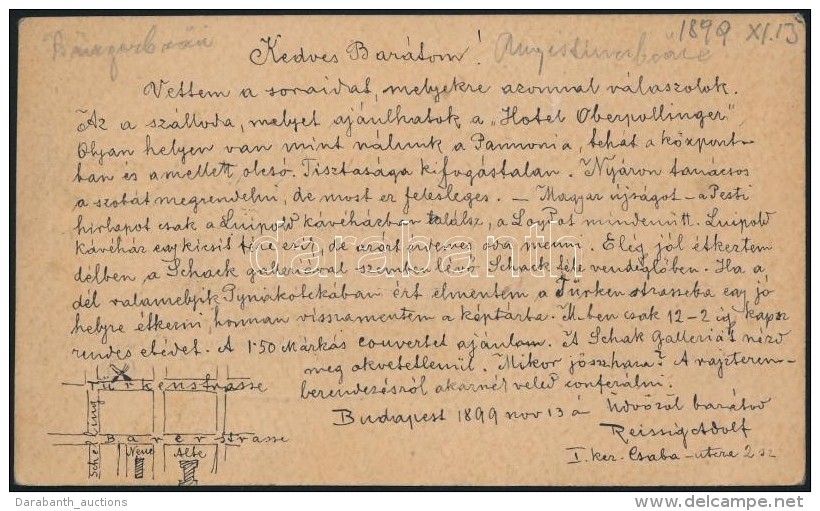 1899 XI.13
Bürgerbräu
Kedves Barátom! Augustinerbräu
Vettem a soraidat, melyekre azonnal válaszolok.
Az a szalloda, melyet ajánlhatok a „Hotel Oberpollinger"
Olyan helyen van mint nálunk a Pannonia, tehát a központ-
ban és amellett olcsó. Tisztasága kifogástalan. Nyáron tanácsos
a szobát megrendelni, de most ez felesleges. – Magyar újságot – a Pesti
hirlapot csak a Luipold kávéházban találsz, a Loydot mindenütt. Luipold
kávéház egy kicsit de azért érdemes oda menni. Eleg jól étkeztem
délben a Schack galleriával szemben lévő Schack féle vendéglőben. Ha a
dél valamelyik Pynakotékában ért elmentem a Türkenstrasseba egy jó
helyre étkezni, honnan visszamentem a képtárba. M-ben csak 12-2 ig kapsz
rendes ebédet. A 1·50 Márkás couvertet ajánlom. A Schak Galleriát nézd
meg okvetetlenül. Mikor jösz haza? A rajzterem-
berendezésről akarnék veled conferálni.
Budapest 1899 nov 13 á Üdvözöl barátod
Reissig Adolf
I. ker. Csaba-utcza 2 sz
Türkenstrasse
Schelling
Barerstrasse
Neue Alte
carabanth
Darabanth_auctions www.delcampe.net